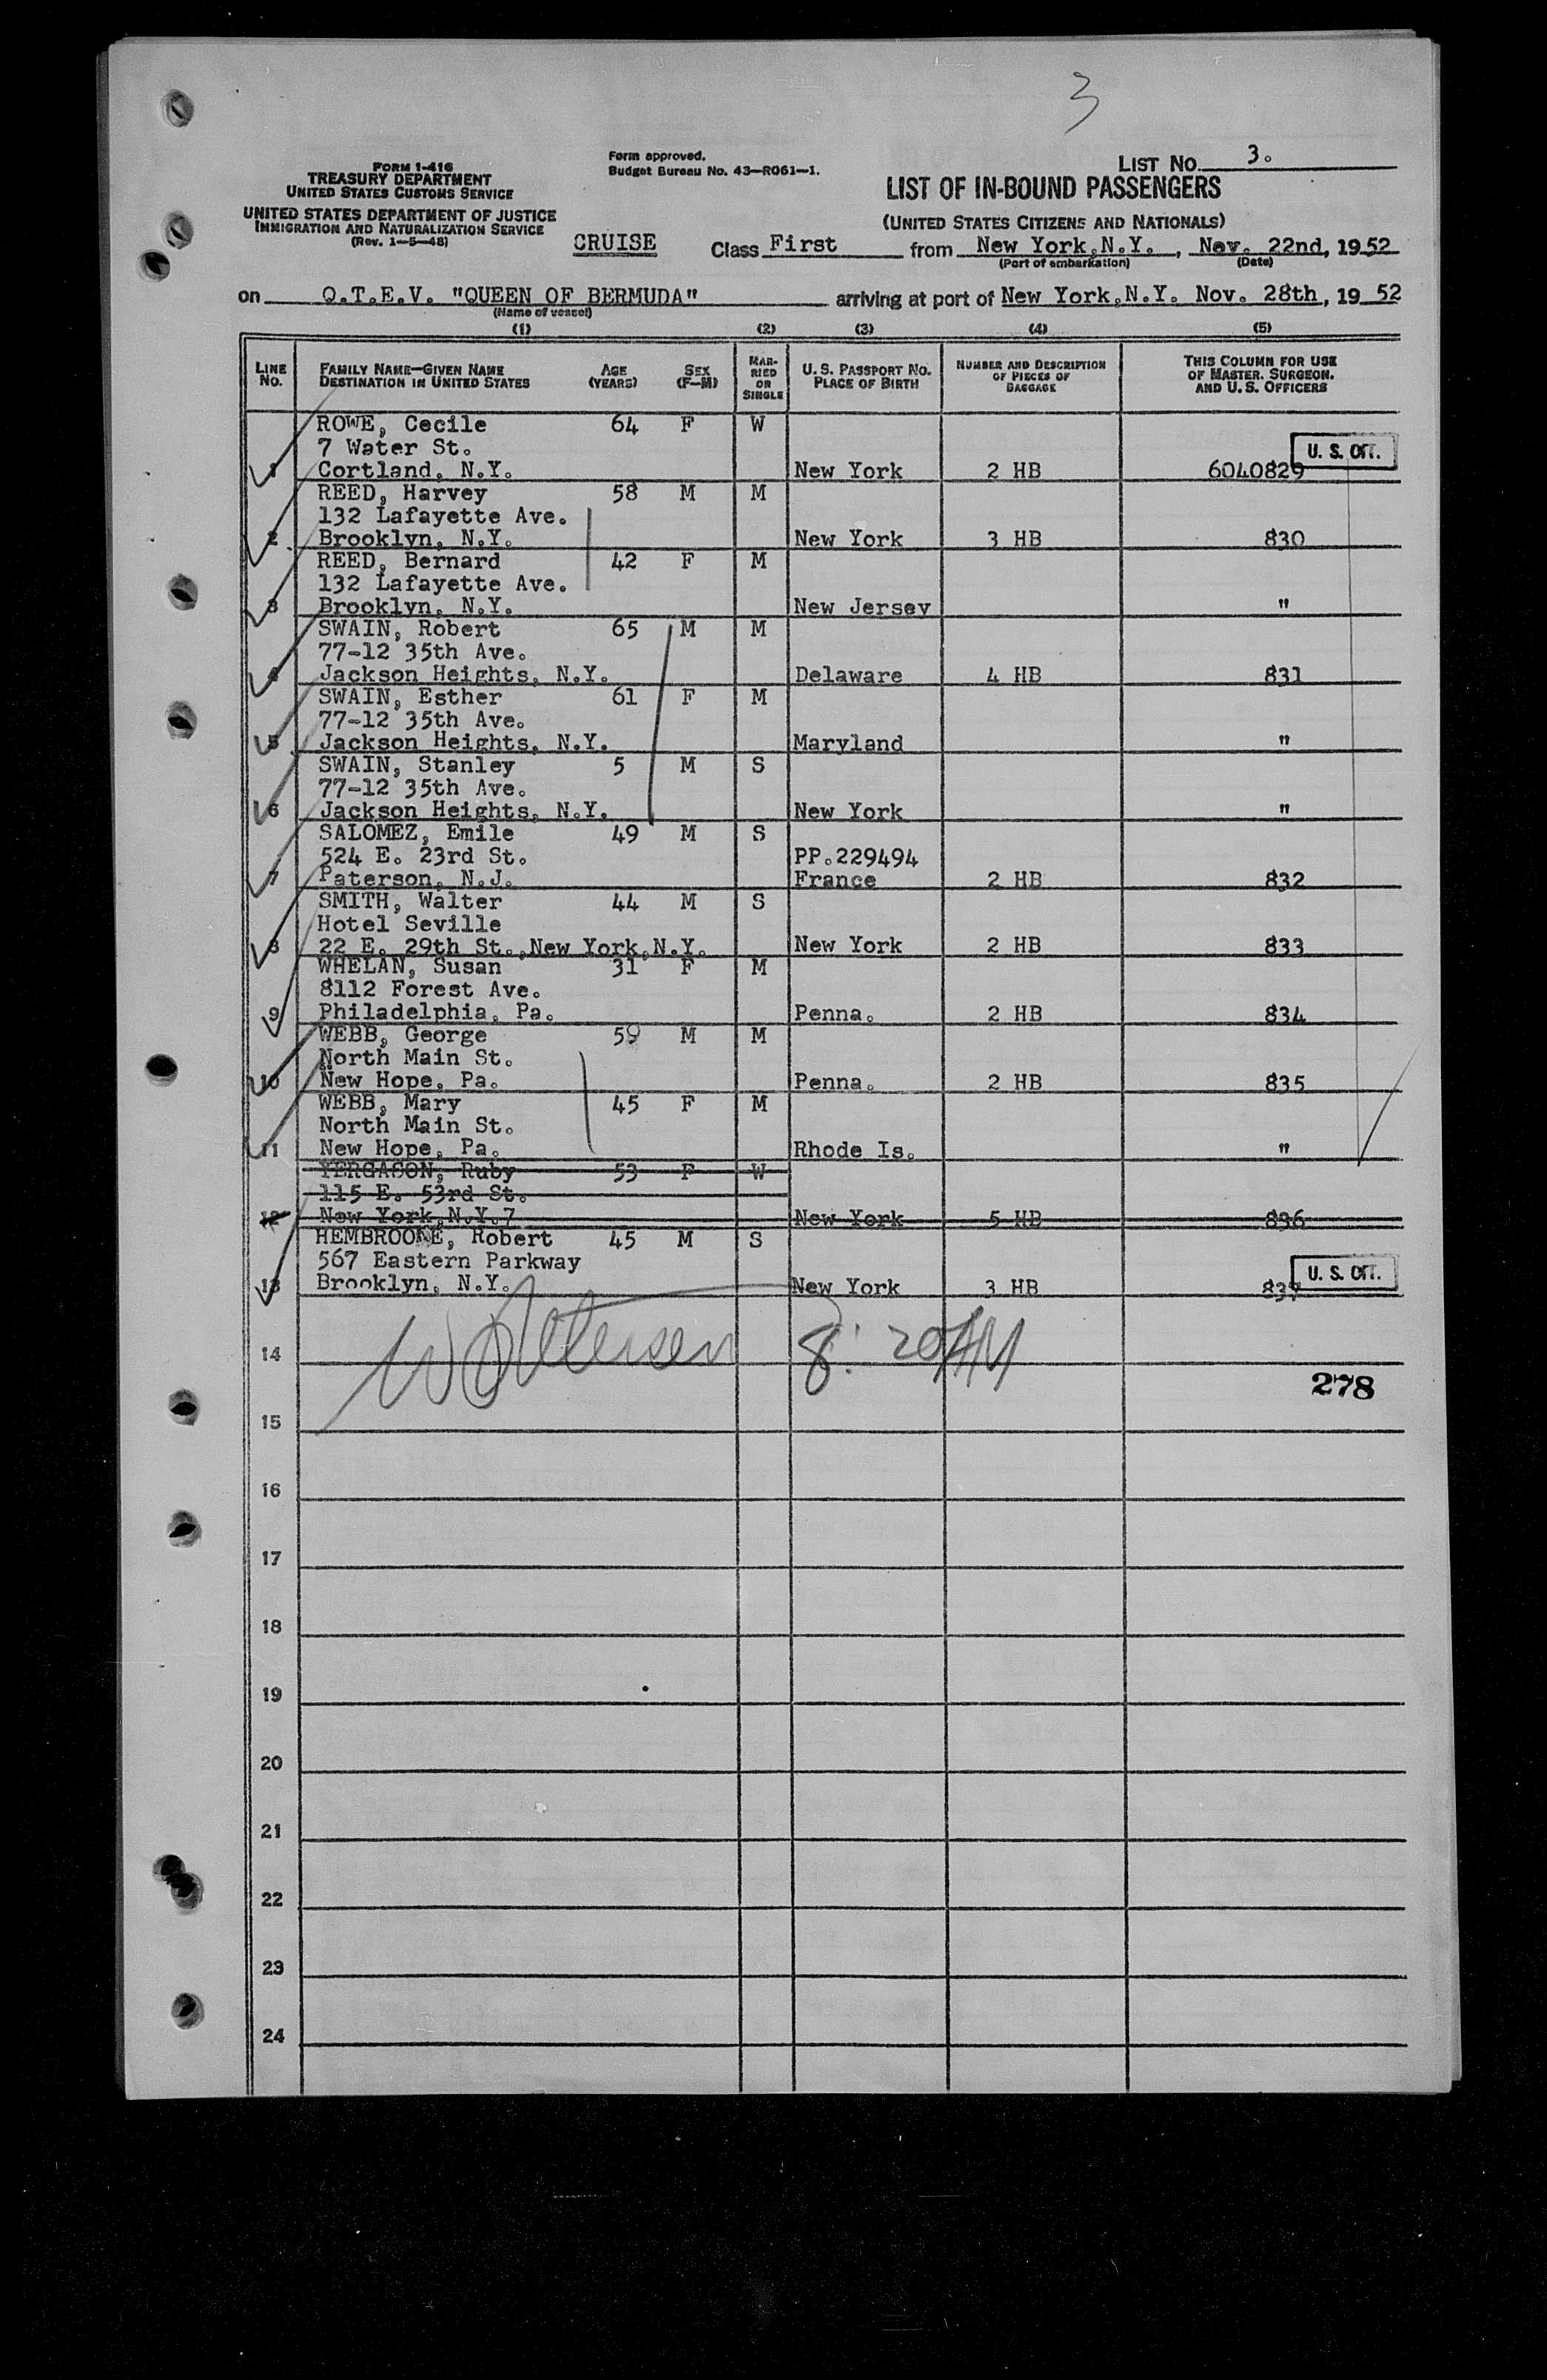 3
FORM I-416
TREASURY DEPARTMENT
UNITED STATES CUSTOMS SERVICE
UNITED STATES DEPARTMENT OF JUSTICE
IMMIGRATION AND NATURALIZATION SERVICE
(Rev. 1-5-48)
Form approved.
Budget Bureau No. 43-R061-1.
LIST NO. 3.
LIST OF IN-BOUND PASSENGERS
(UNITED STATES CITIZENS AND NATIONALS)
CRUISE Class First from New York,N.Y., Nov. 22nd, 1952
(Port of embarkation) (Date)
on Q.T.E.V. "QUEEN OF BERMUDA" arriving at port of New York,N.Y. Nov. 28th, 19 52
(Name of vessel)
(1) (2) (3) (4) (5)
LINE NO. FAMILY NAME—GIVEN NAME DESTINATION IN UNITED STATES AGE (YEARS) SEX (F—M) MARRIED OR SINGLE U. S. PASSPORT NO. PLACE OF BIRTH NUMBER AND DESCRIPTION OF PIECES OF BAGGAGE THIS COLUMN FOR USE OF MASTER, SURGEON, AND U. S. OFFICERS
ROWE, Cecile 64 F W
7 Water St. U. S. Cit.
1 Cortland, N.Y. New York 2 HB 6040829
REED, Harvey 58 M M
132 Lafayette Ave.
2 Brooklyn, N.Y. New York 3 HB 830
REED, Bernard 42 F M
132 Lafayette Ave.
3 Brooklyn, N.Y. New Jersey "
SWAIN, Robert 65 M M
77-12 35th Ave.
4 Jackson Heights, N.Y. Delaware 4 HB 831
SWAIN, Esther 61 F M
77-12 35th Ave.
5 Jackson Heights, N.Y. Maryland "
SWAIN, Stanley 5 M S
77-12 35th Ave.
6 Jackson Heights, N.Y. New York "
SALOMEZ, Emile 49 M S
524 E. 23rd St. PP.229494
7 Paterson, N.J. France 2 HB 832
SMITH, Walter 44 M S
Hotel Seville
8 22 E. 29th St.,New York,N.Y. New York 2 HB 833
WHELAN, Susan 31 F M
8112 Forest Ave.
9 Philadelphia, Pa. Penna. 2 HB 834
WEBB, George 59 M M
North Main St.
10 New Hope, Pa. Penna. 2 HB 835
WEBB, Mary 45 F M
North Main St.
11 New Hope, Pa. Rhode Is. "
YERGASON, Ruby 53 F W
115 E. 53rd St.
12 New York,N.Y.7 New York 5 HB 836
HEMBROOKE, Robert 45 M S
567 Eastern Parkway
13 Brooklyn, N.Y. New York 3 HB 837 U. S. Cit.
8:20AM
14
278
15
16
17
18
19
20
21
22
23
24